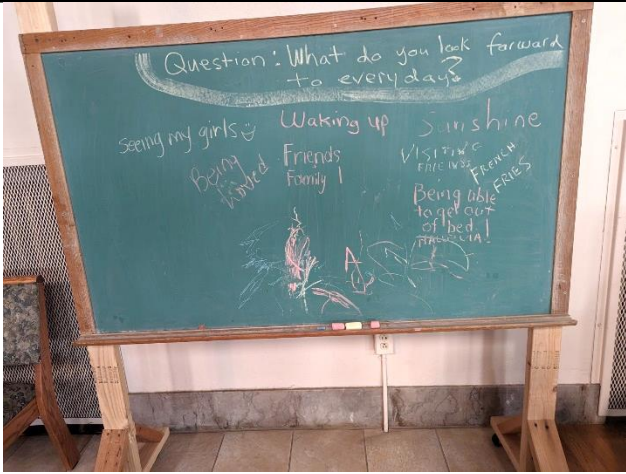 Question: What do you look forward
to everyday?
Seeing my girls
Waking up
Sunshine
Being
Friends
Family !
VISITING
FRIENDS
FRENCH
FRIES
Being able
to get out
of bed !
HALLELUIA!
A